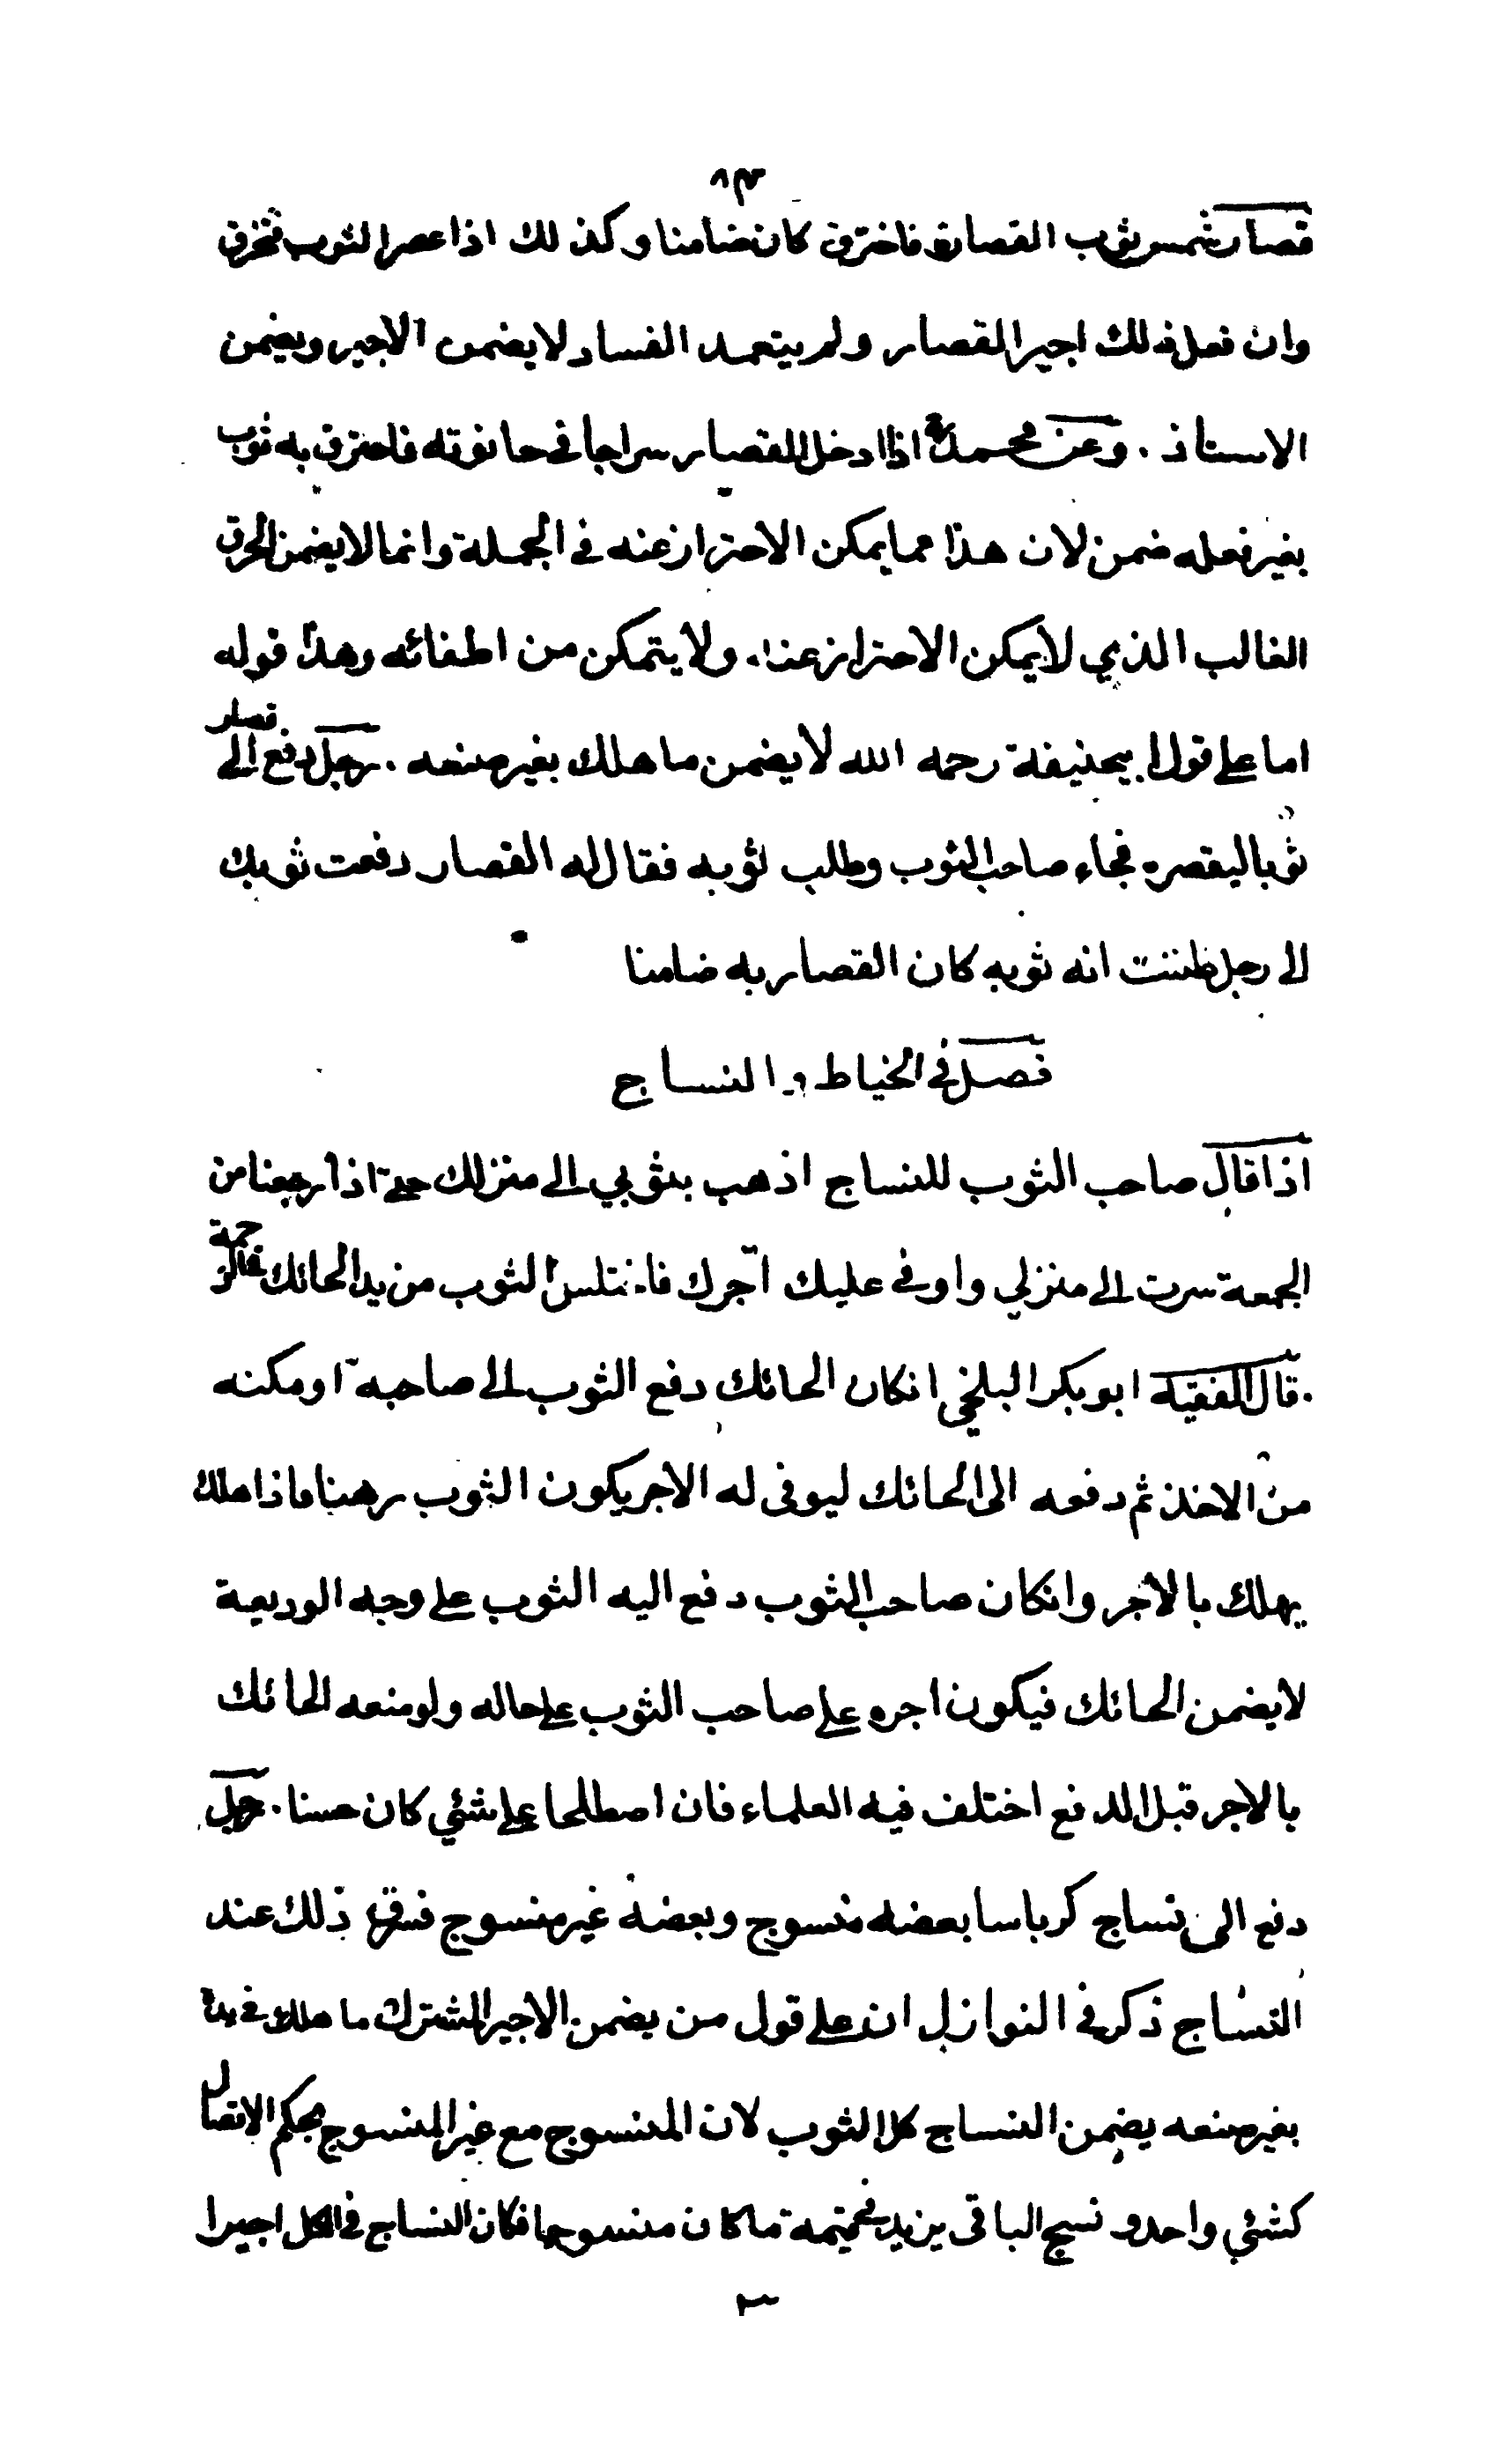 ٨٣
قصار شمس ثوب القصارة فاخترق كان ضامنا وكذلك اذا عصر الثوب فتخرق
وان فعل ذلك اجير القصار ولم يتعمد الفساد لا يضمن الاجير ويضمن
الاستاذ . وعن محمد اذا ادخل القصار سراجا في حانوته فاحترق به ثوب
بغير فعله ضمن لان هذا مما يمكن الاحتراز عنه في الجملة وانما لا يضمن الحرق
الغالب الذي لا يمكن الاحتراز عنه ولا يتمكن من اطفائه وهذا قوله
اما على قول ابيحنيفة رحمه الله لا يضمن ما هلك بغير صنعه . رجل دفع الى قصار
ثوبا ليقصره فجاء صاحب الثوب وطلب ثوبه فقال له القصار دفعت ثوبك
الى رجل ظننت انه ثوبه كان القصار به ضامنا
فصل في الخياط والنساج
اذا قال صاحب الثوب للنساج اذهب بثوبي الى منزلك حتى اذا رجعنا من
الجمعة سرت الى منزلي واوفى عليك اجرك فاختلس الثوب من يد الحائك في الزحمة
. قال الفقيه ابو بكر البلخي انكان الحائك دفع الثوب الى صاحبه او مكنه
من الاخذ ثم دفعه الى الحائك ليوفى له الاجر يكون الثوب رهنا فاذا هلك
يهلك بالاجر وانكان صاحب الثوب دفع اليه الثوب على وجه الوديعة
لا يضمن الحائك فيكون اجره على صاحب الثوب على حاله ولو منعه الحائك
بالاجر قبل الدفع اختلف فيه العلماء فان اصطلحا على شئي كان حسنا . رجل
دفع الى نساج كرباسا بعضه منسوج وبعضه غير منسوج فسرق ذلك عند
النساج ذكر في النوازل ان على قول من يضمن الاجير المشترك ما هلك في يده
بغير صنعه يضمن النساج كل الثوب لان المنسوج مع غير المنسوج بحكم الاتصال
كشئي واحد و نسج الباقى يزيد في قيمة ما كان منسوجا فكان النساج في الكل اجيرا